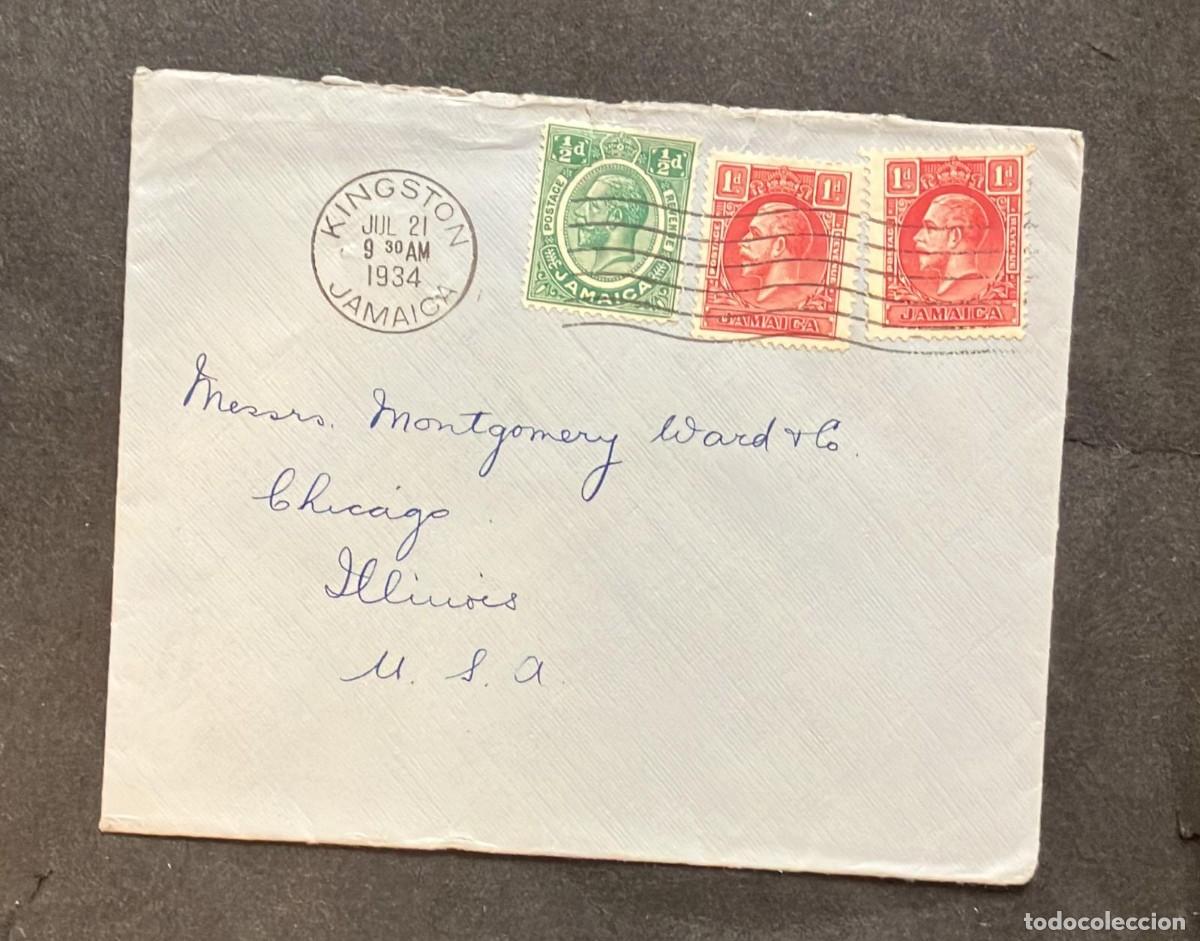 KINGSTON
JUL 21
9 30 AM
1934
JAMAICA
½d ½d
POSTAGE REVENUE
JAMAICA
1d 1d
POSTAGE REVENUE
JAMAICA
1d 1d
POSTAGE REVENUE
JAMAICA
Messrs. Montgomery Ward & Co.
Chicago
Illinois
U. S. A.
todocoleccion